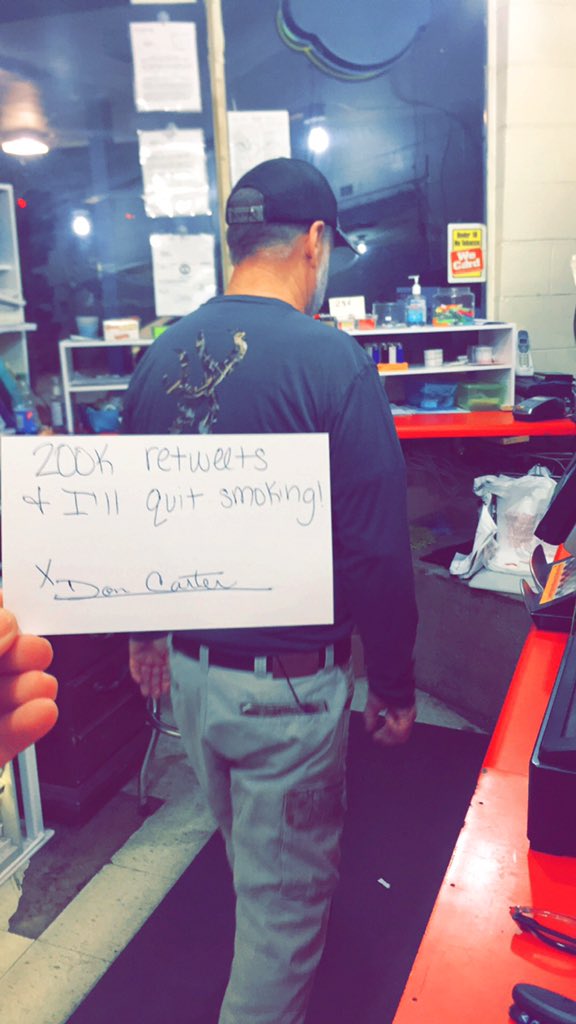 Under 18
No Tobacco
We
Card
200K retweets
& I'll quit smoking!
X Don Carter